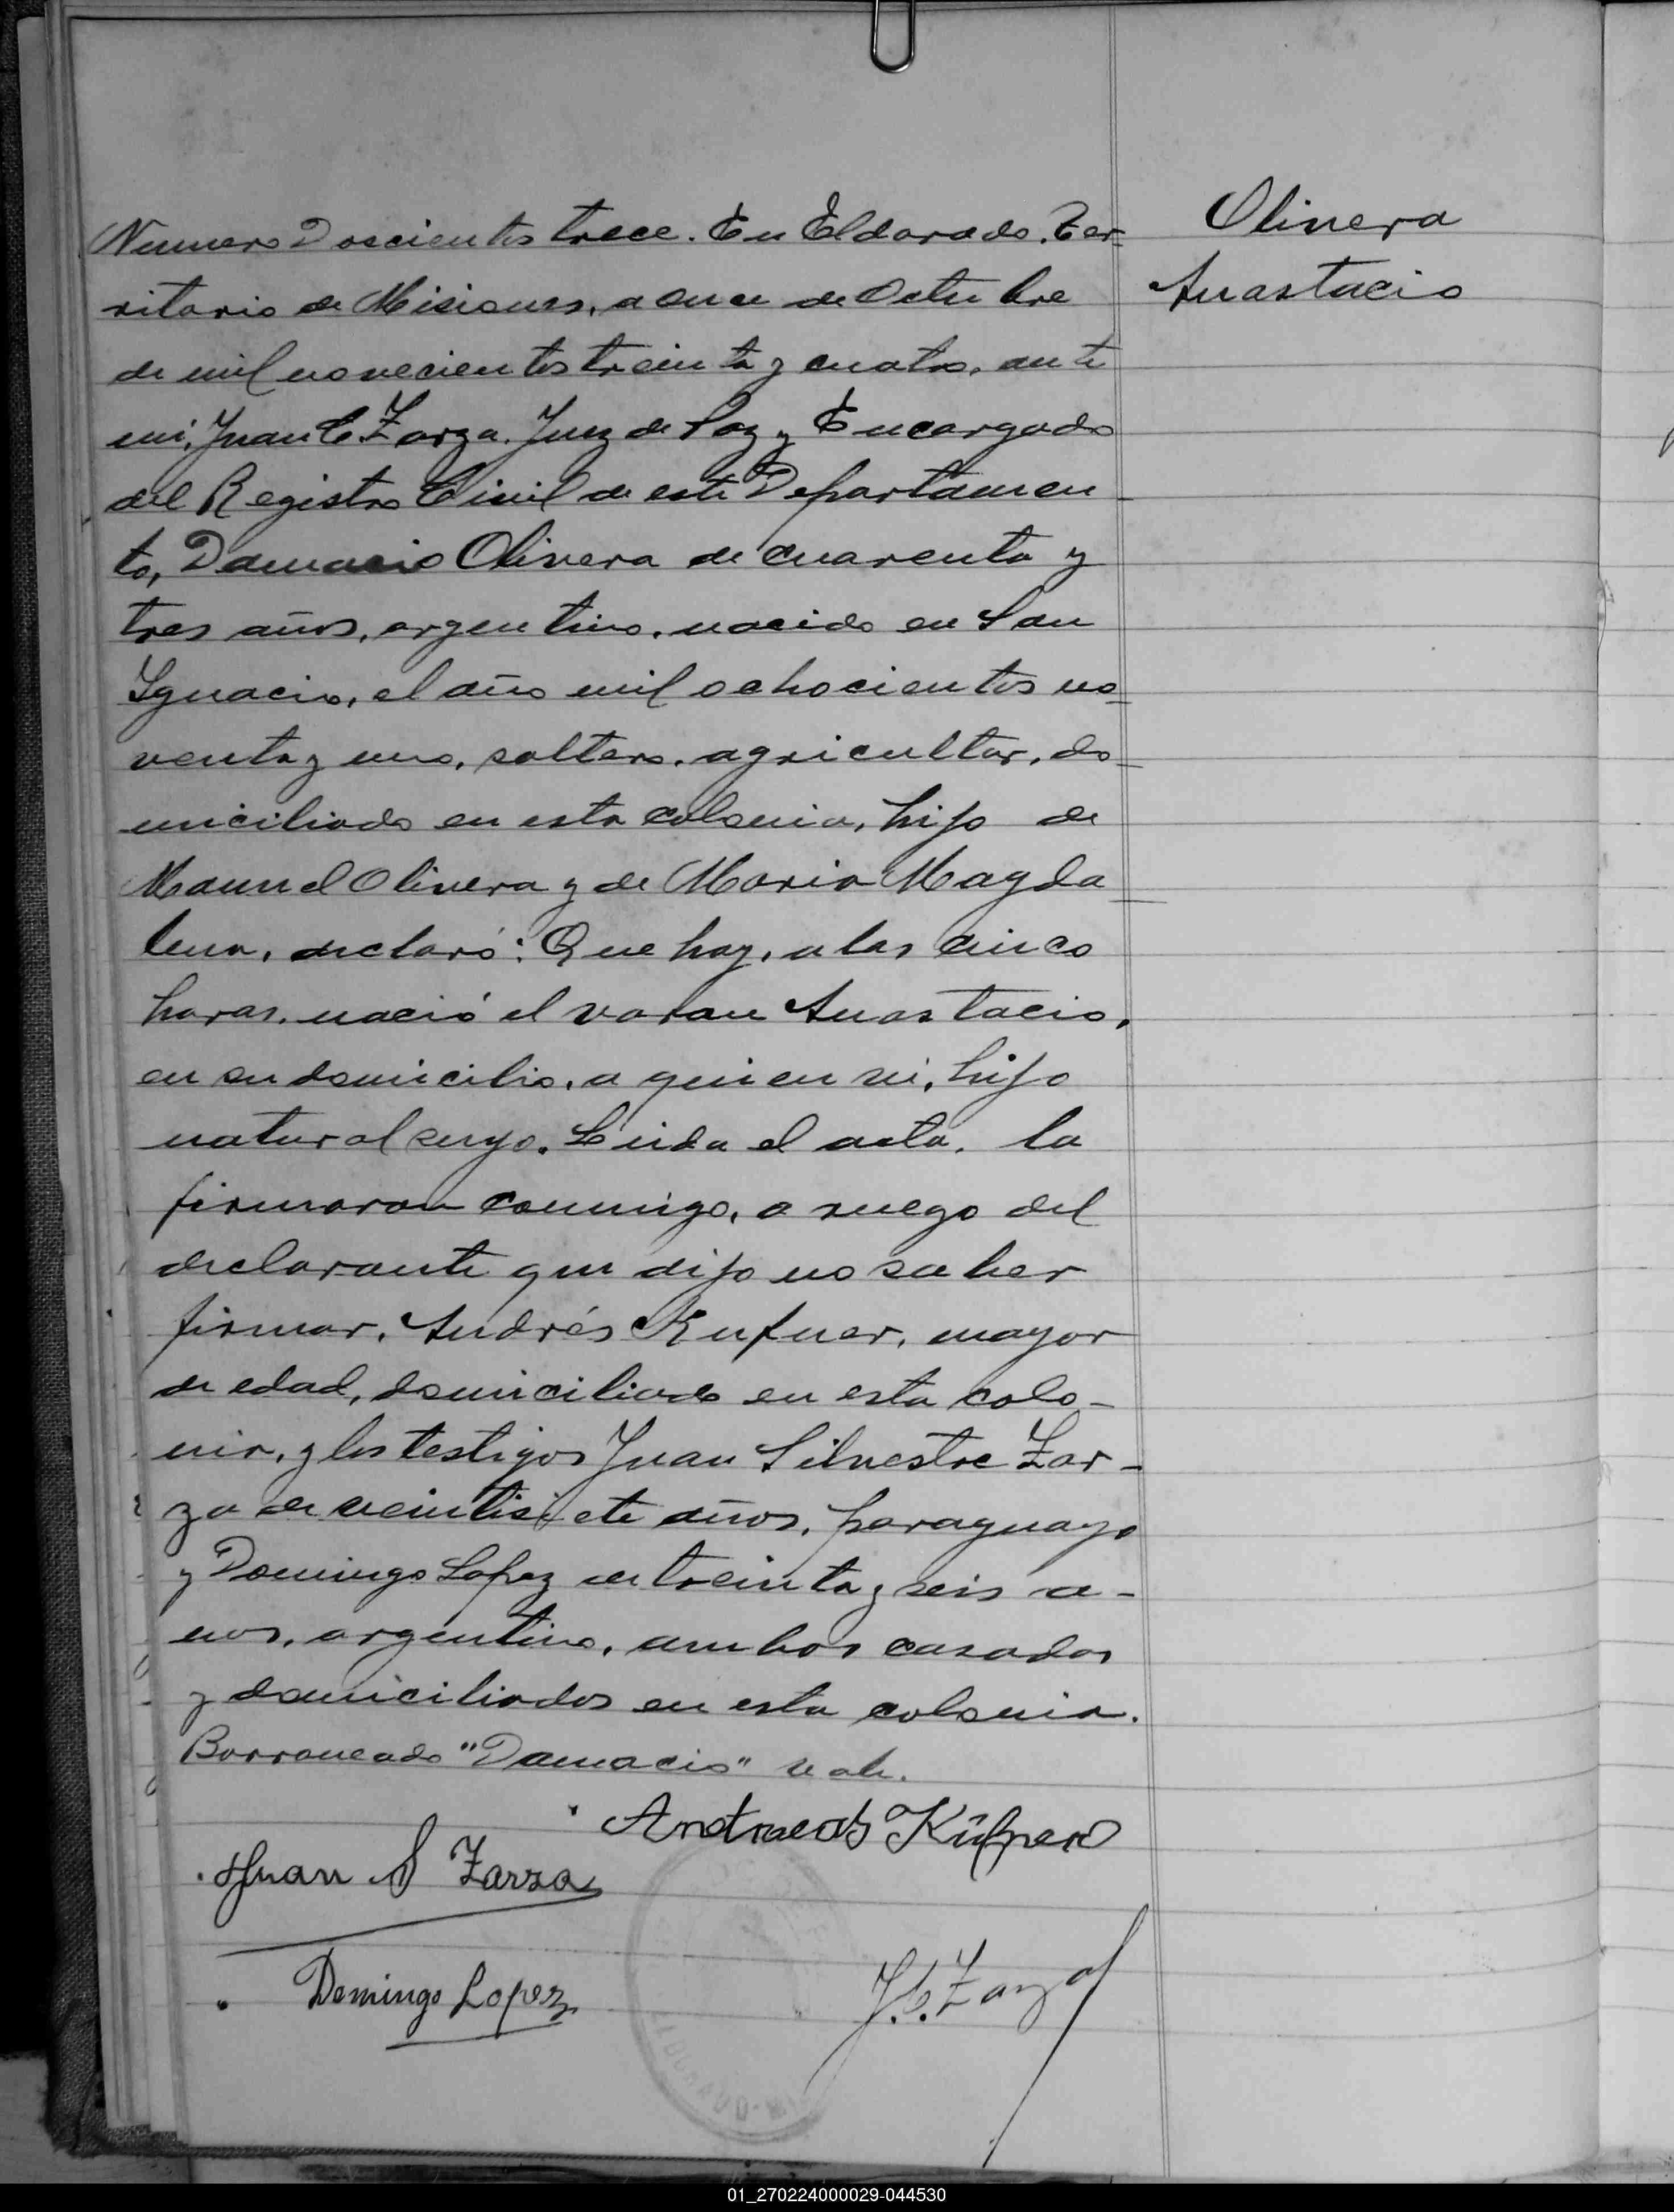 Olivera
Anastacio
Numero Doscientos trece. En Eldorado. Ter-
ritorio de Misiones, a once de Octubre
de mil novecientos treinta y cuatro, ante
mi, Juan C Zarza. Juez de Paz y Encargado
del Registro Civil de este Departamen
to, Damacio Olivera de cuarenta y
tres años, argentino, nacido en San
Ignacio, el año mil ochocientos no-
venta y uno, soltero, agricultor, do-
miciliado en esta colonia, hijo de
Manuel Olivera y de Maria Magda
lena, declaró: Que hoy, a las cinco
horas, nació el varon Anastacio,
en su domicilio, a quien vi, hijo
natural suyo. Leida el acta, la
firmaron conmigo, a ruego del
declarante que dijo no saber
firmar, Andrés Kufner, mayor
de edad, domiciliado en esta colo-
nia, y los testigos Juan Silvestre Zar-
za de veintisiete años, paraguayo
y Domingo Lopez de treinta y seis a-
nos, argentino, ambos casados
y domiciliados en esta colonia.
Borroneado "Damacio" vale.
Andreas Küfner
Juan S Zarza
Domingo Lopez
J. C. Zarza
01_270224000029-044530